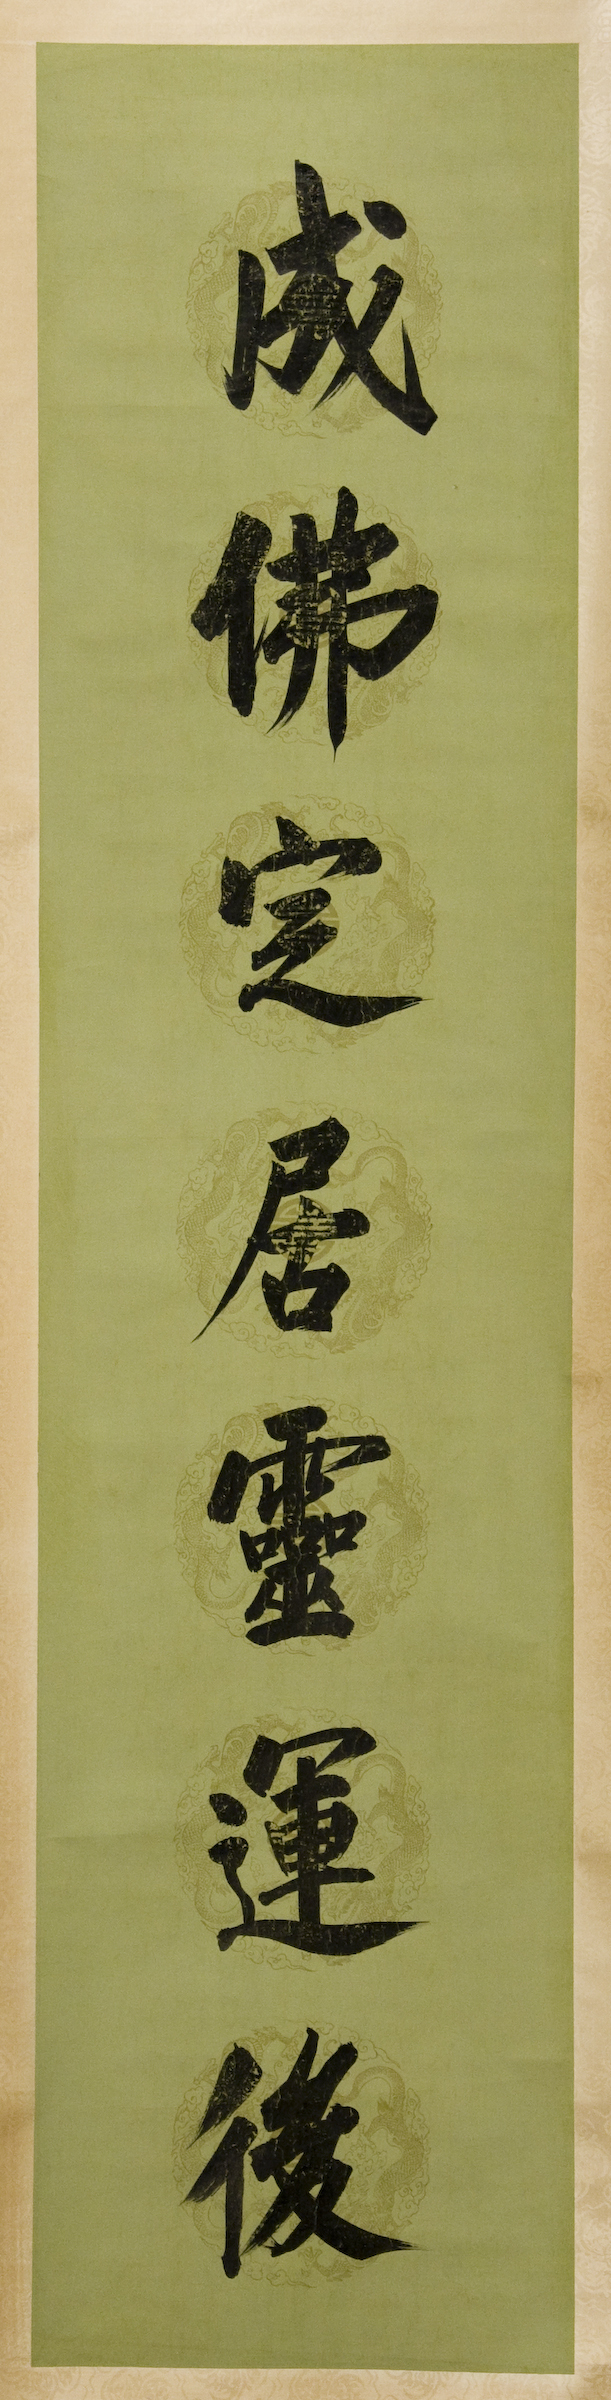 成佛定居靈運後